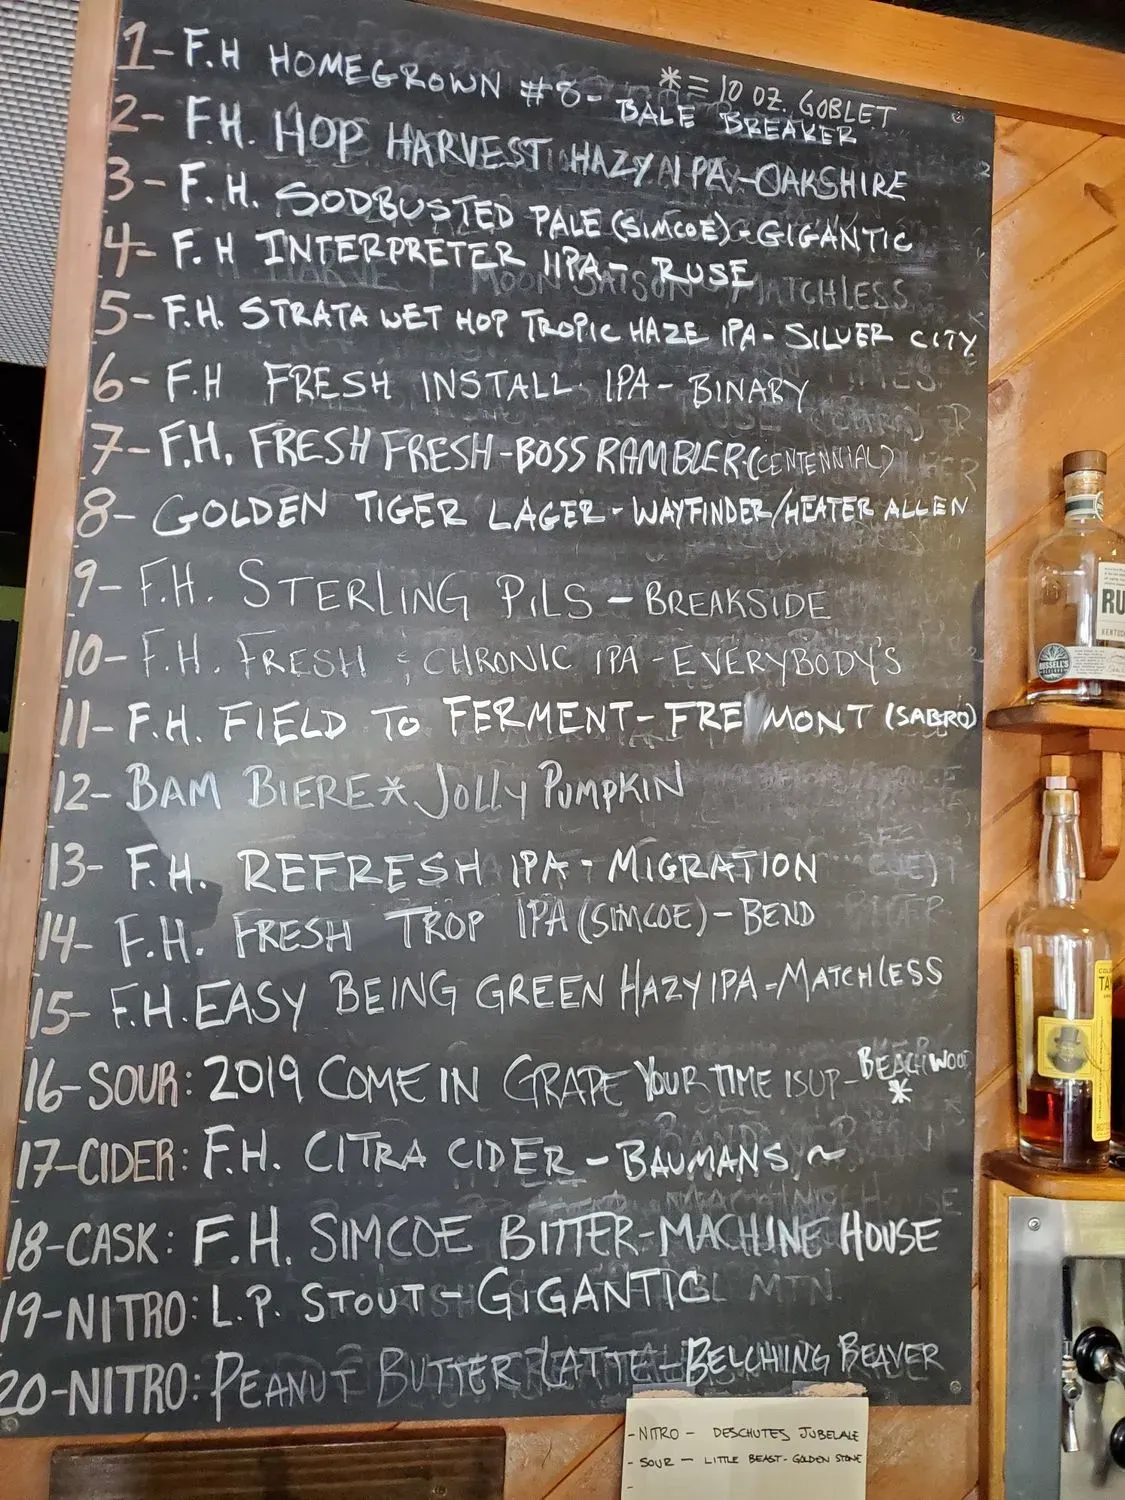 1- F.H HOMEGROWN #8- BALE BREAKER
* = 10 OZ. GOBLET
2- F.H. HOP HARVEST HAZY IPA-OAKSHIRE
3- F.H. SODBUSTED PALE (SIMCOE)-GIGANTIC
4- F.H INTERPRETER IIPA- RUSE
5- F.H. STRATA WET HOP TROPIC HAZE IPA- SILVER CITY
6- F.H FRESH INSTALL IPA- BINARY
7- F.H. FRESH FRESH-BOSS RAMBLER-(CENTENNIAL)
8- GOLDEN TIGER LAGER - WAYFINDER/HEATER ALLEN
9- F.H. STERLING PILS - BREAKSIDE
10- F.H. FRESH & CHRONIC IPA -EVERYBODY'S
11- F.H. FIELD TO FERMENT- FREMONT (SABRO)
12- BAM BIERE* JOLLY PUMPKIN
13- F.H. REFRESH IPA - MIGRATION
14- F.H. FRESH TROP IPA (SIMCOE)- BEND
15- F.H. EASY BEING GREEN HAZY IPA -MATCHLESS
16- SOUR: 2019 COME IN GRAPE YOUR TIME IS UP- BEACHWOOD *
17-CIDER: F.H. CITRA CIDER - BAUMANS ~
18-CASK: F.H. SIMCOE BITTER-MACHINE HOUSE
19-NITRO: L.P. STOUT - GIGANTIC
20-NITRO: PEANUT BUTTER LATTE-BELCHING BEAVER
-NITRO - DESCHUTES JUBELALE
-SOUR - LITTLE BEAST- GOLDEN STONE
-
RU
KENTUCKY
RUSSELL'S
TA